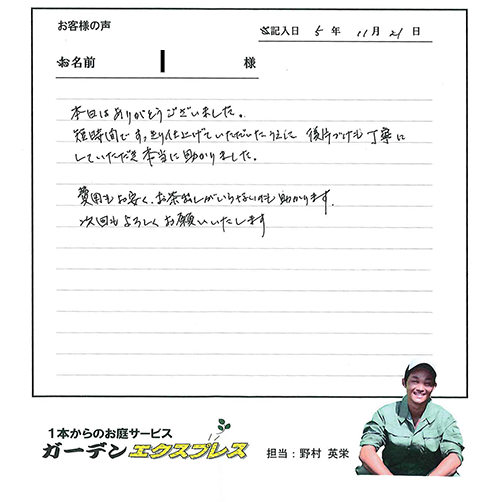 お客様の声
ご記入日 5 年 11 月 21 日
お名前 様
本日はありがとうございました。
短時間ですっきり仕上げていただいたうえに 後片づけも丁寧に
していただき本当に助かりました。
費用もお安く、お茶出しがいらないのも助かります。
次回もよろしくお願いいたします
1本からのお庭サービス
ガーデンエクスプレス
担当：野村 英栄